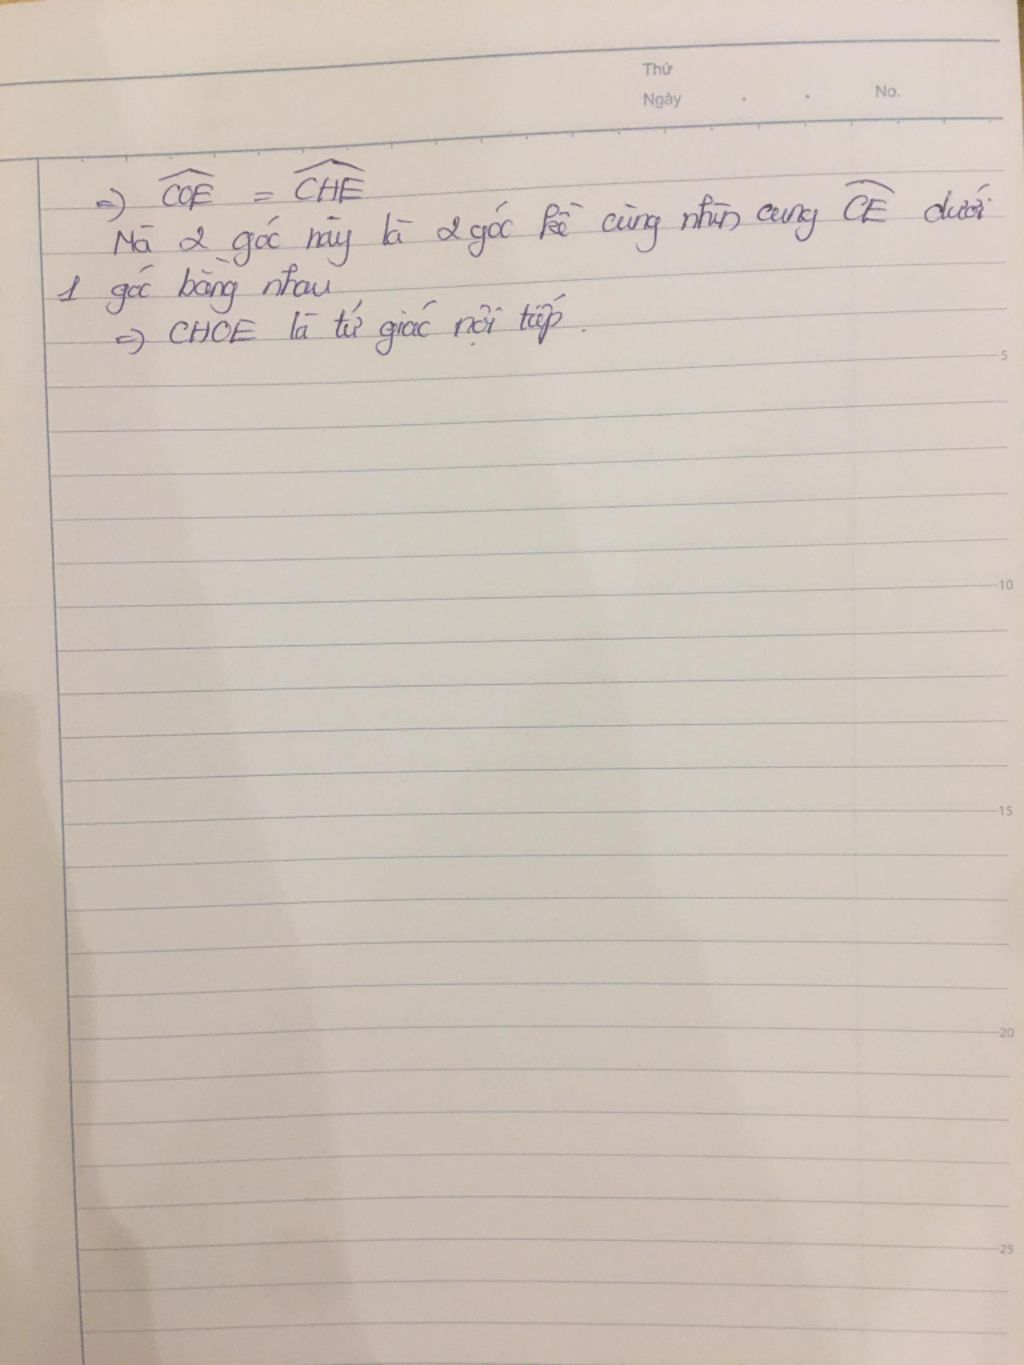 Thứ
Ngày . . No.
=> \widehat{COE} = \widehat{CHE}
Mà 2 góc này là 2 góc kề cùng nhìn cung \widehat{CE} dưới
1 góc bằng nhau
=> CHOE là tứ giác nội tiếp.
5
10
15
20
25